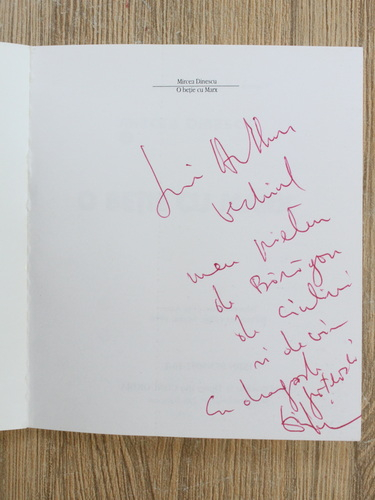 Mircea Dinescu
O beție cu Marx
lui Arthur
vechiul
meu prieten
de Bărăgan
de ciulini
și de vin
Cu dragoste